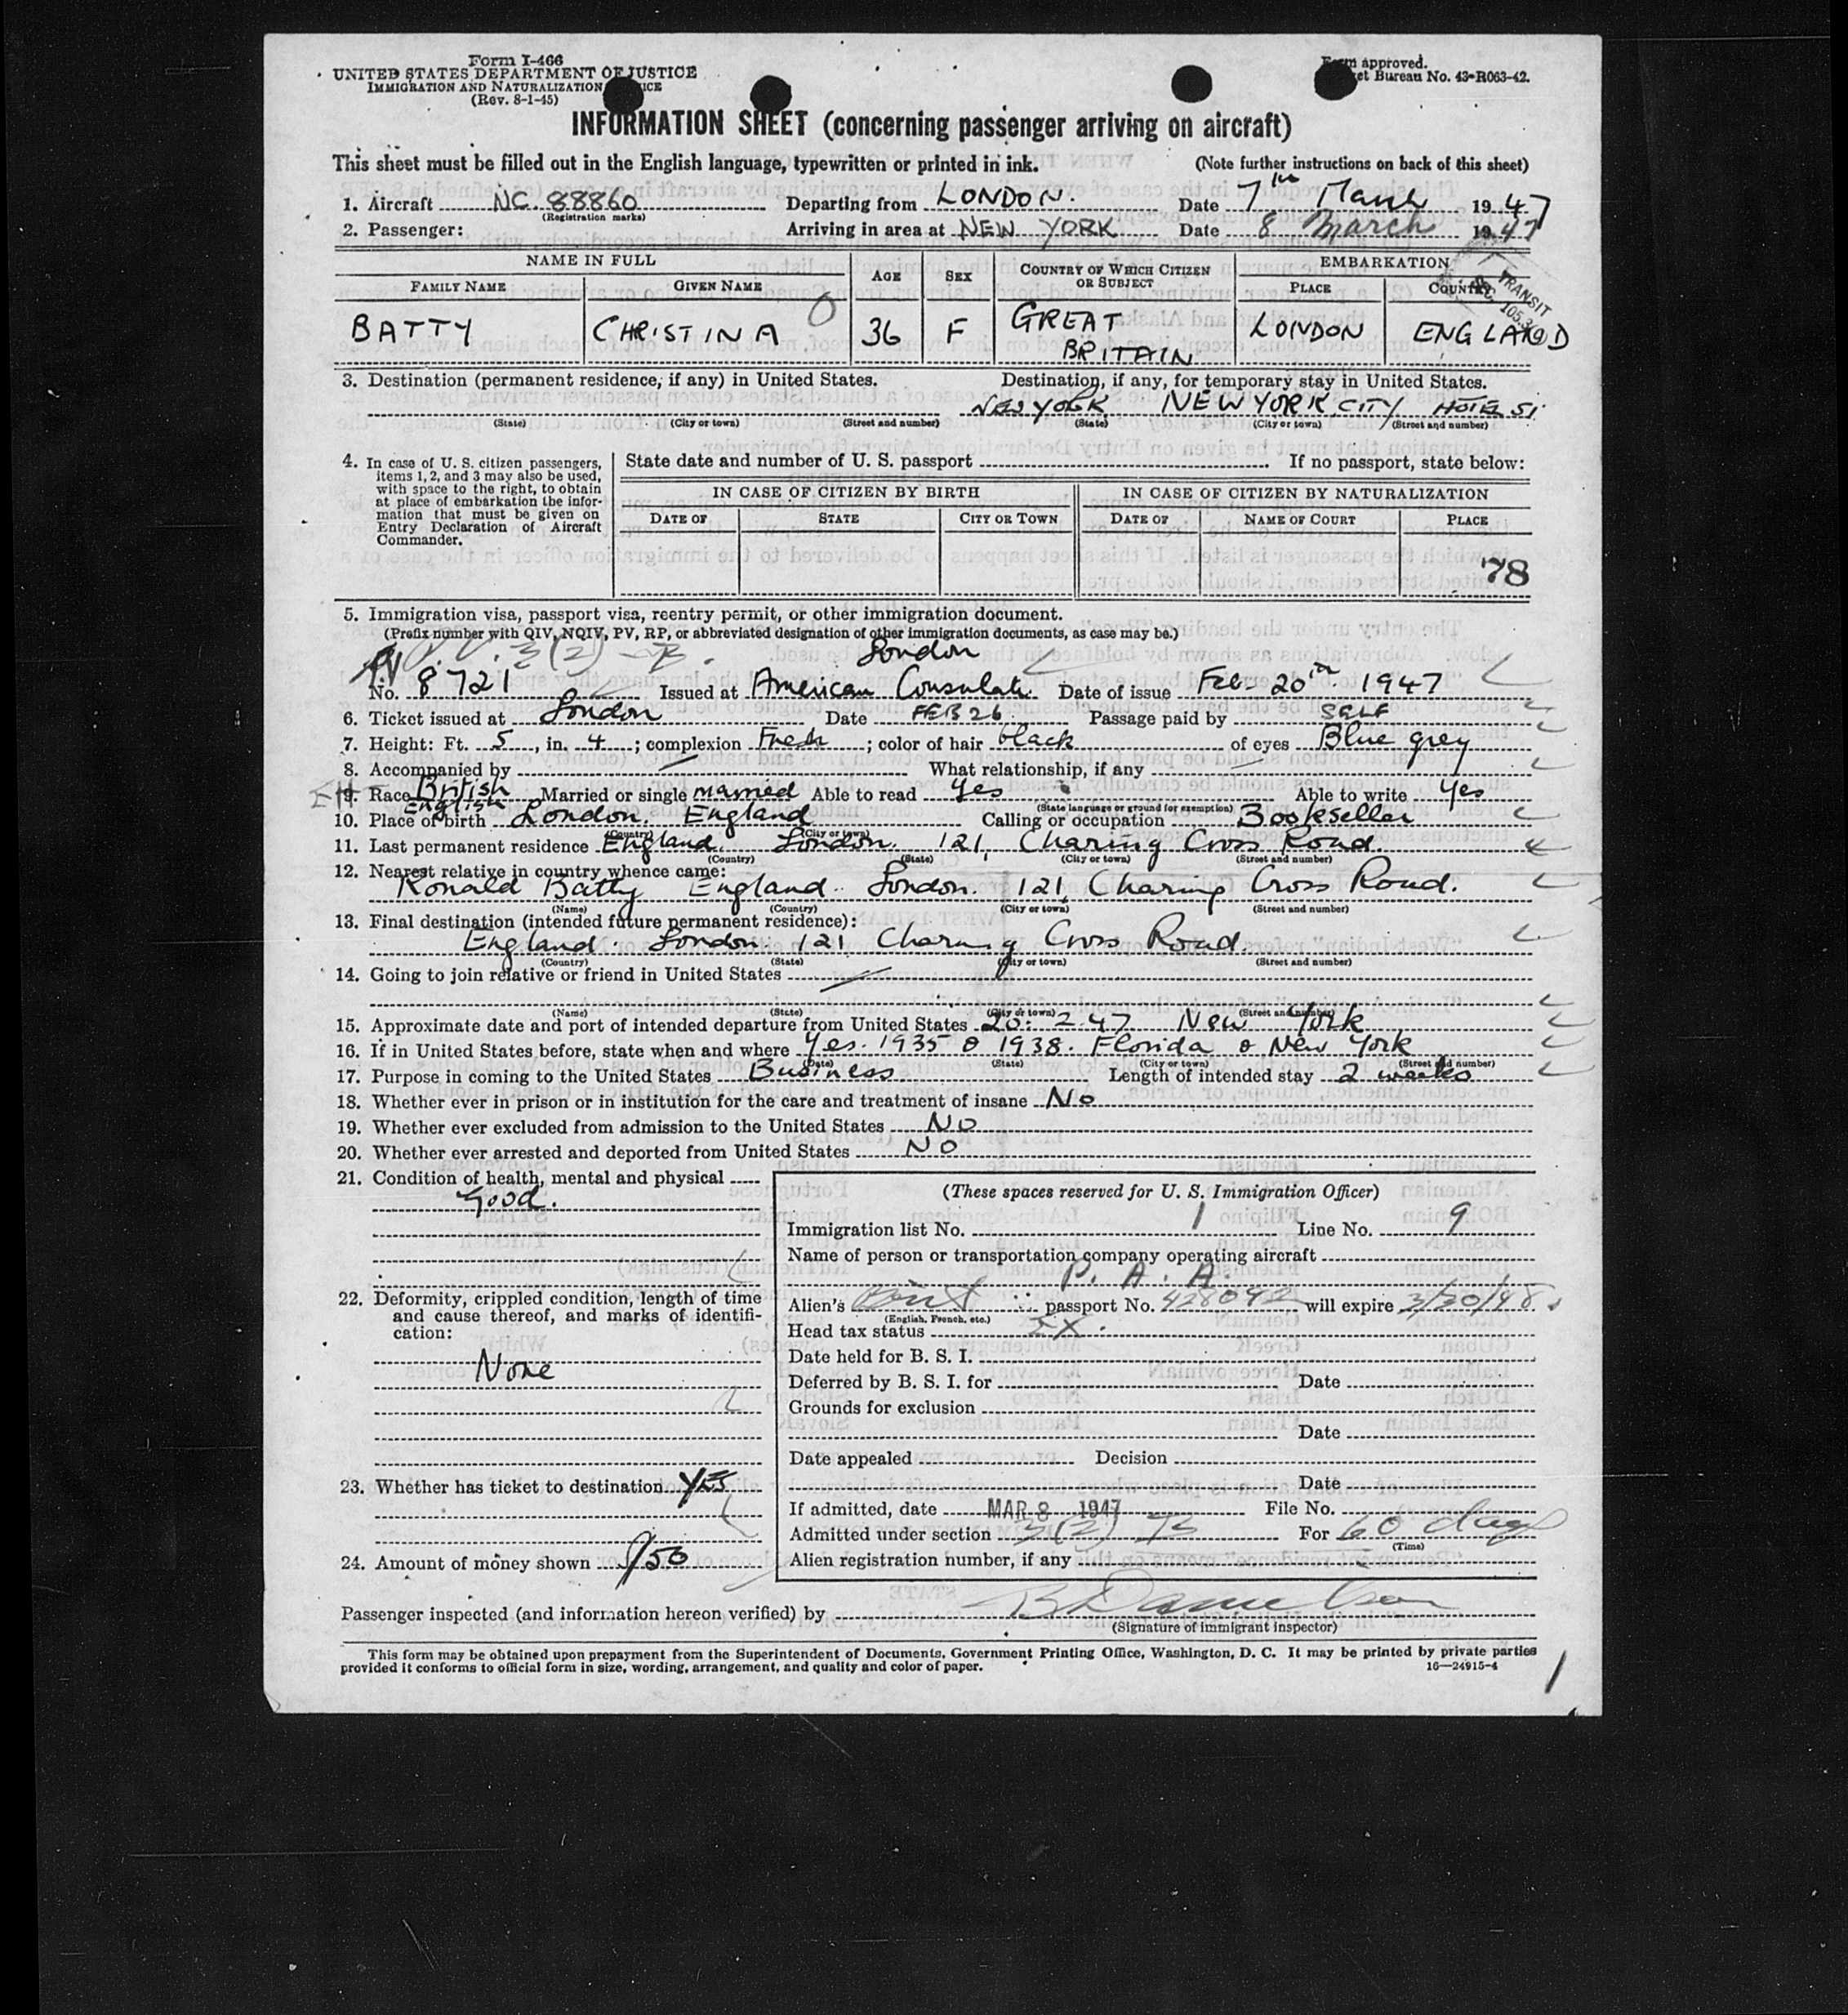 Form I-466
UNITED STATES DEPARTMENT OF JUSTICE
IMMIGRATION AND NATURALIZATION
(Rev. 8-1-45)
approved.
Bureau No. 43-R063-42.
INFORMATION SHEET (concerning passenger arriving on aircraft)
This sheet must be filled out in the English language, typewritten or printed in ink. (Note further instructions on back of this sheet)
1. Aircraft NC. 88860 Departing from LONDON. Date 7th March 1947
(Registration marks)
2. Passenger: Arriving in area at NEW YORK Date 8 March 1947
NAME IN FULL AGE SEX COUNTRY OF WHICH CITIZEN OR SUBJECT EMBARKATION
FAMILY NAME GIVEN NAME PLACE COUNTRY
TRANSIT
BATTY CHRISTINA 0 36 F GREAT BRITAIN LONDON ENGLAND
3. Destination (permanent residence, if any) in United States. Destination, if any, for temporary stay in United States.
NEW YORK NEW YORK CITY HOTEL
(State) (City or town) (Street and number) (State) (City or town) (Street and number)
4. In case of U. S. citizen passengers, items 1, 2, and 3 may also be used, with space to the right, to obtain at place of embarkation the information that must be given on Entry Declaration of Aircraft Commander.
State date and number of U. S. passport If no passport, state below:
IN CASE OF CITIZEN BY BIRTH IN CASE OF CITIZEN BY NATURALIZATION
DATE OF STATE CITY OR TOWN DATE OF NAME OF COURT PLACE
78
5. Immigration visa, passport visa, reentry permit, or other immigration document.
(Prefix number with QIV, NQIV, PV, RP, or abbreviated designation of other immigration documents, as case may be.)
PV P.V. 3(2) London
No. 8721 Issued at American Consulate Date of issue Feb 20th 1947
6. Ticket issued at London Date FEB 26 Passage paid by SELF
7. Height: Ft. 5, in. 4; complexion Fresh; color of hair black of eyes Blue grey
8. Accompanied by What relationship, if any
9. Race British English Married or single married Able to read Yes Able to write Yes
(State language or ground for exemption)
10. Place of birth London. England Calling or occupation Bookseller
(Country) (City or town)
11. Last permanent residence England. London. 121, Charing Cross Road.
(Country) (State) (City or town) (Street and number)
12. Nearest relative in country whence came:
Ronald Batty England London. 121, Charing Cross Road.
(Name) (Country) (City or town) (Street and number)
13. Final destination (intended future permanent residence):
England. London. 121 Charing Cross Road.
(Country) (State) (City or town) (Street and number)
14. Going to join relative or friend in United States
(Name) (State) (City or town) (Street and number)
15. Approximate date and port of intended departure from United States 20: 2.47 New York
16. If in United States before, state when and where Yes. 1935 & 1938. Florida & New York
(Date) (State) (City or town) (Street and number)
17. Purpose in coming to the United States Business Length of intended stay 2 weeks
18. Whether ever in prison or in institution for the care and treatment of insane No
19. Whether ever excluded from admission to the United States NO
20. Whether ever arrested and deported from United States NO
21. Condition of health, mental and physical
Good.
22. Deformity, crippled condition, length of time and cause thereof, and marks of identification:
None
23. Whether has ticket to destination YES
24. Amount of money shown $150
(These spaces reserved for U. S. Immigration Officer)
Immigration list No. 1 Line No. 9
Name of person or transportation company operating aircraft
P. A. A.
Alien's Brit passport No. 428092 will expire 3/30/48
(English, French, etc.)
Head tax status EX.
Date held for B. S. I.
Deferred by B. S. I. for Date
Grounds for exclusion
Date
Date appealed Decision
Date
If admitted, date MAR 8 1947 File No.
Admitted under section 3(2) B For 60 days
(Time)
Alien registration number, if any
Passenger inspected (and information hereon verified) by
(Signature of immigrant inspector)
This form may be obtained upon prepayment from the Superintendent of Documents, Government Printing Office, Washington, D. C. It may be printed by private parties
provided it conforms to official form in size, wording, arrangement, and quality and color of paper. 16—24915-4